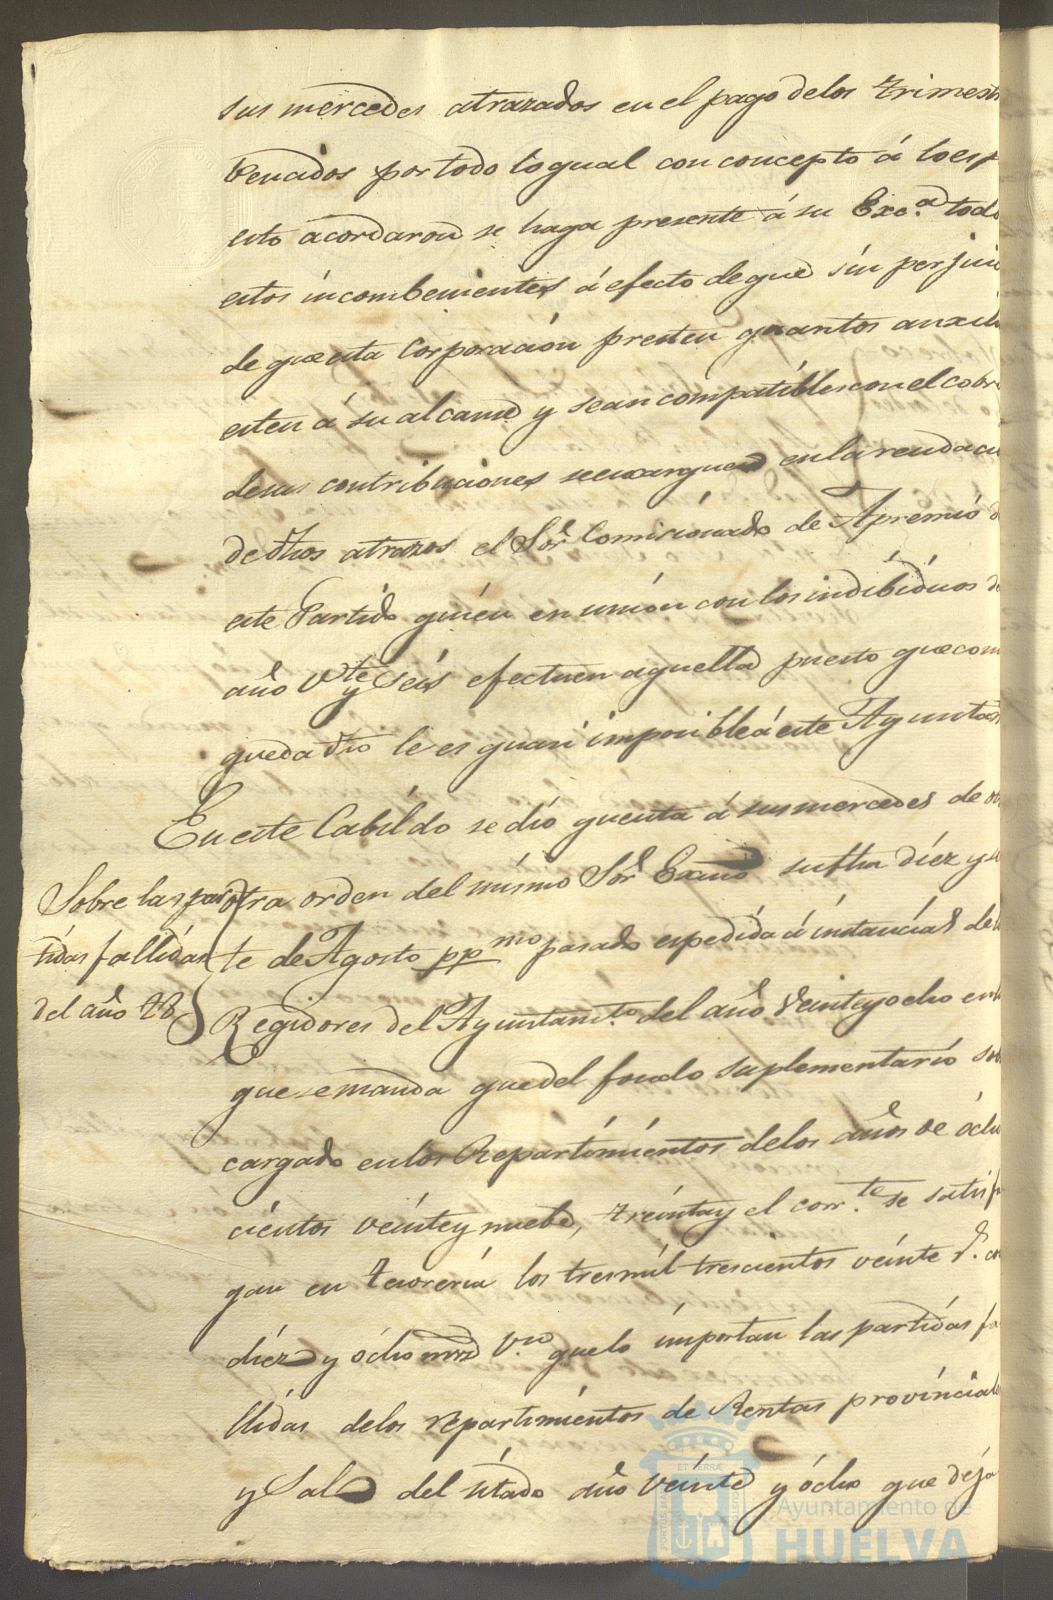 sus mercedes atrazados en el pago delos trimestr
Vencidos por todo lo qual con concepto á lo esp
esto acordaron se haga presente á su Exc.ª todo
estos incombenientes á efecto de que sin perjuici
de que esta Corporacion presten quantos auxili
esten á su alcance y sean compatibles con el cobro
desus contribuciones se encarguen en la reudaci
de dhos atrazos el Sor. Comicionado de Apremio d
este Partido quien en union con los indibiduos d
año Vte y seis efectuen aquella puesto que com
queda dho le es quasi imposible á este Ayuntam
En este Cabildo se dió quenta á sus mercedes de
otra orden del mismo Sor. Exmo su fha diez y si
te de Agosto ppmo pasado espedida á instancias de
Regidores del Ayuntamto. del año Veinte y ocho en
que se manda que del fondo suplementario so
cargado en los Repartimientos delos años de ocho
cientos veinte y nuebe, treinta y el corrte. se satisfa
gan en Tesoreria los tres mil trescientos veinte r.s
diez y ocho mrs Vn que lo importan las partidas fa
llidas delos repartimientos de Rentas provincial
y Sal del sitado año veinte y ocho que deja
Sobre las par
tidas fallidas
del año 28
Ayuntamiento de
HUELVA